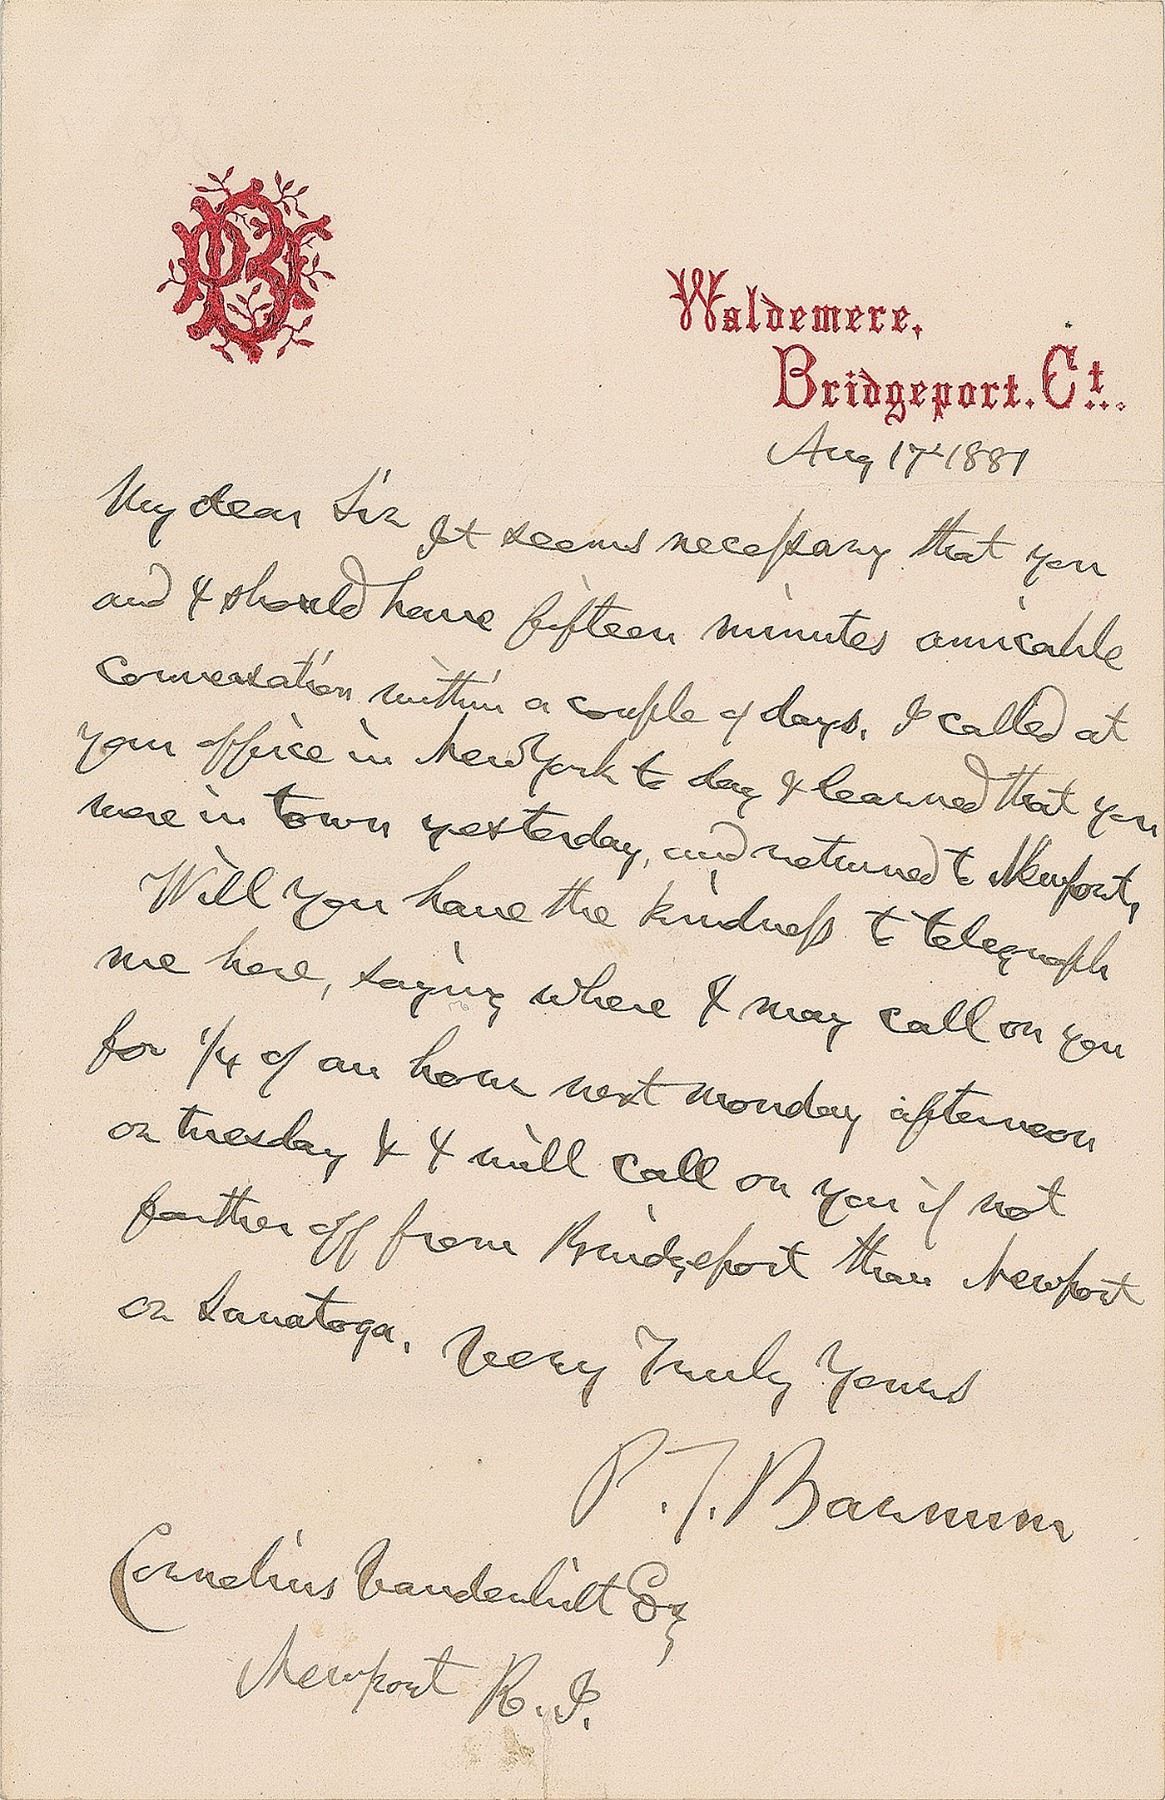 PTB
Waldemere,
Bridgeport. Ct.
Aug 17th 1881
My dear Sir It seems necessary that you
and I should have fifteen minutes amicable
conversation within a couple of days. I called at
your office in New York to day & learned that you
were in town yesterday, and returned to Newport,
Will you have the kindness to telegraph
me here, saying where I may call on you
for 1/4 of an hour next monday afternoon
or tuesday & I will call on you if not
farther off from Bridgeport than Newport
or Saratoga. Very Truly Yours
P. T. Barnum
Cornelius Vanderbilt Esq
Newport R. I.